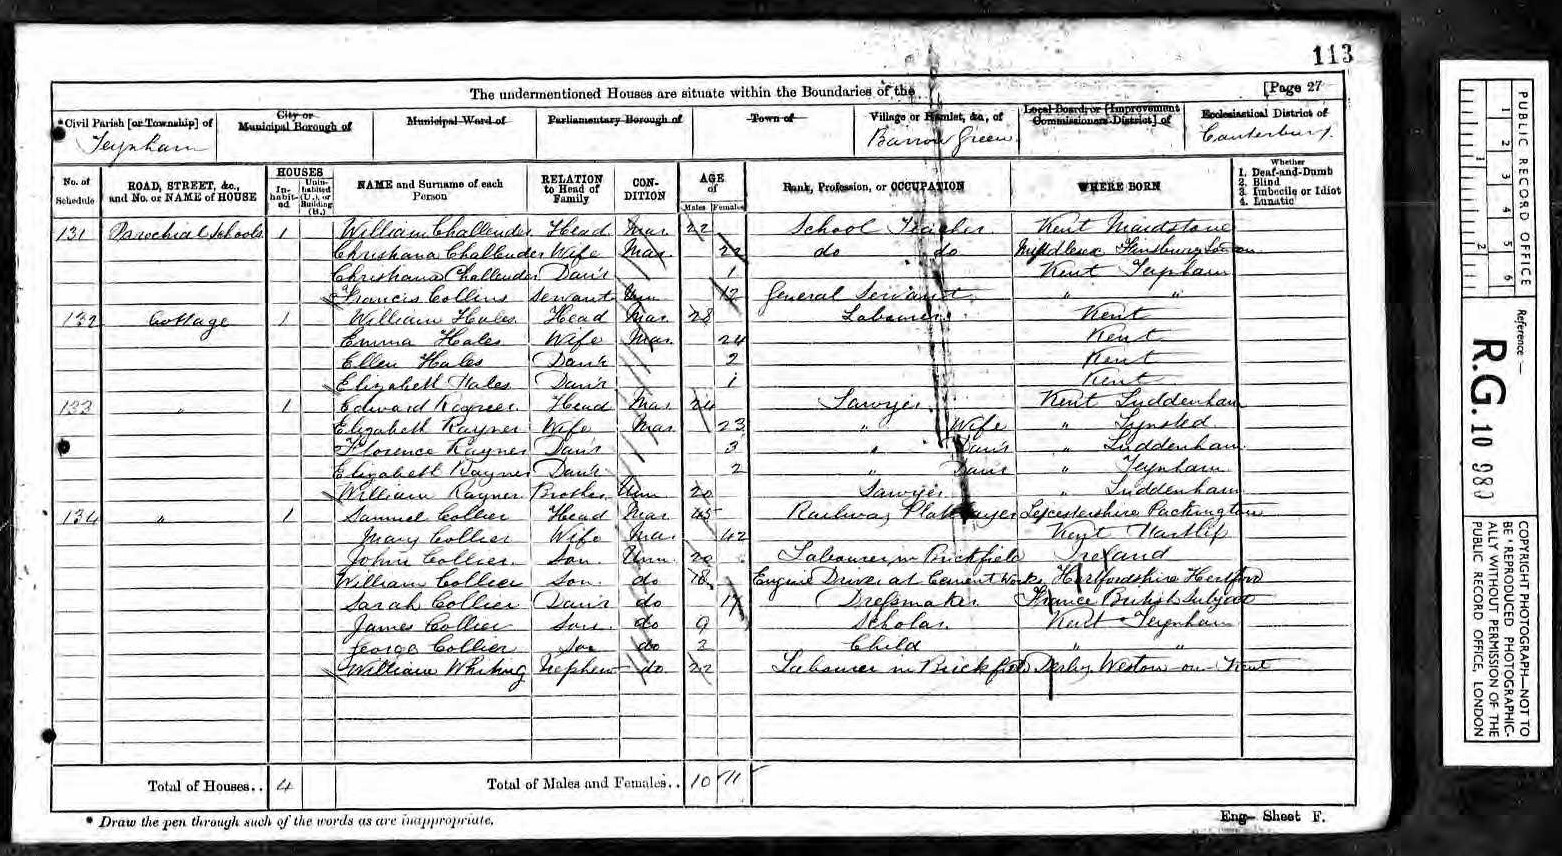 113
The undermentioned Houses are situate within the Boundaries of the
[Page 27
*Civil Parish [or Township] of
City or Municipal Borough of
Municipal Ward of
Parliamentary Borough of
Town of
Village or Hamlet, &c., of
Local Board, or [Improvement Commissioners District] of
Ecclesiastical District of
Teynham
Barrow Green
Canterbury
No. of Schedule
ROAD, STREET, &c., and No. or NAME of HOUSE
HOUSES
In-habit-ed
Unin-habited (U.), or Building (B.)
NAME and Surname of each Person
RELATION to Head of Family
CON-DITION
AGE of
Males
Females
Rank, Profession, or OCCUPATION
WHERE BORN
Whether
1. Deaf-and-Dumb
2. Blind
3. Imbecile or Idiot
4. Lunatic
131 Parochial Schools 1 William Challender Head Mar 22 School Teacher Kent Maidstone
Christiana Challender Wife Mar 22 do do Middlesex Finsbury London
Christiana Challender Daur 1 Kent Teynham
Francis Collins Servant Unm 12 General Servant " "
132 Cottage 1 William Hales Head Mar 28 Labourer Kent
Emma Hales Wife Mar 24 Kent
Ellen Hales Daur 2 Kent
Elizabeth Hales Daur 1 Kent
133 " 1 Edward Rayner Head Mar 24 Sawyer Kent Luddenham
Elizabeth Rayner Wife Mar 23 " Wife " Lynsted
Florence Rayner Daur 3 " Daur " Luddenham
Elizabeth Rayner Daur 2 " Daur " Teynham
William Rayner Brother Unm 20 Sawyer " Luddenham
134 " 1 Samuel Collier Head Mar 45 Railway Platelayer Leicestershire Packington
Mary Collier Wife Mar 42 Kent Hartlip
John Collier Son Unm 20 Labourer in Brickfield Ireland
William Collier Son do 18 Engine Driver at Cement Works Hertfordshire Hertford
Sarah Collier Daur do Dressmaker France British Subject
James Collier Son do 9 Scholar Kent Teynham
George Collier Son do 3 Child " "
William Whiting Nephew do 22 Labourer in Brickfield Derby Weston on Trent
Total of Houses.. 4
Total of Males and Females.. 10 11
* Draw the pen through such of the words as are inappropriate.
Eng— Sheet F.
PUBLIC RECORD OFFICE
1 2 3 4 5 6
1 2
Reference :—
R.G. 10 980
COPYRIGHT PHOTOGRAPH—NOT TO
BE REPRODUCED PHOTOGRAPHIC-
ALLY WITHOUT PERMISSION OF THE
PUBLIC RECORD OFFICE, LONDON